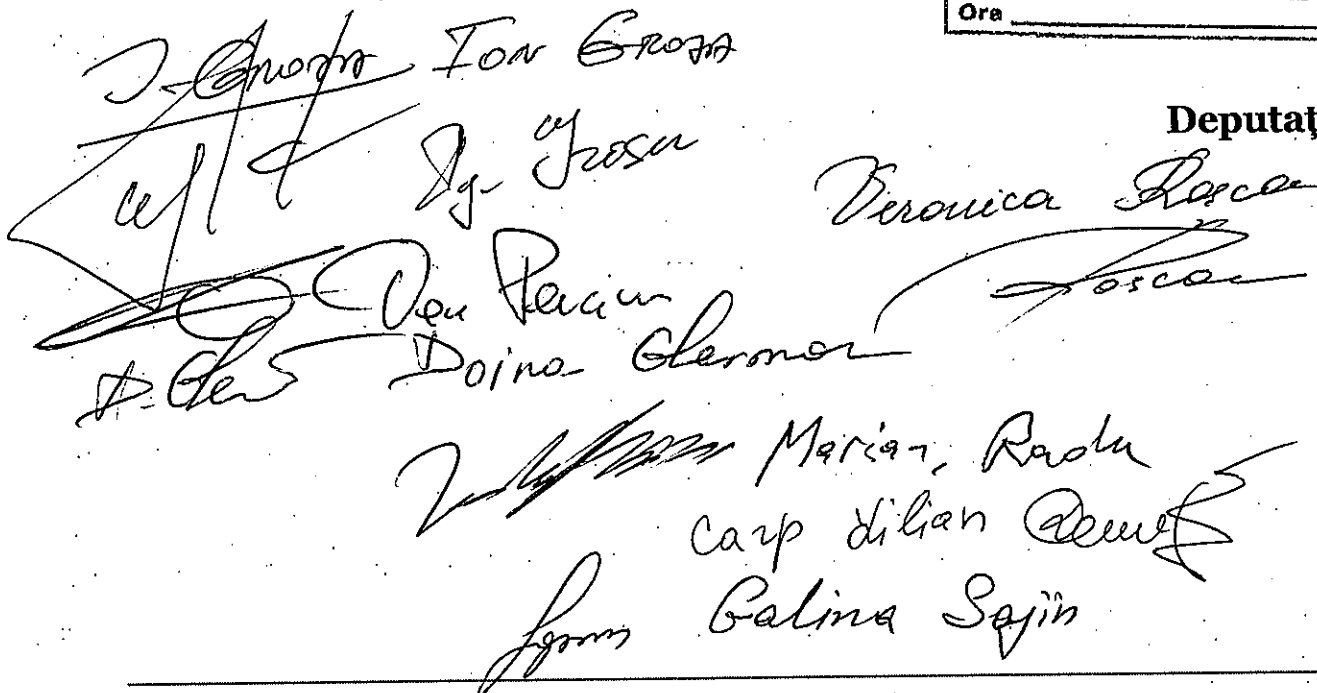 Ora
Deputaţ
Ion Groza
Ig. Grosu
Veronica Roșca
Roșca
Dan Perciun
Doina Gherman
Marian, Radu
Carp Lilian
Galina Sajin